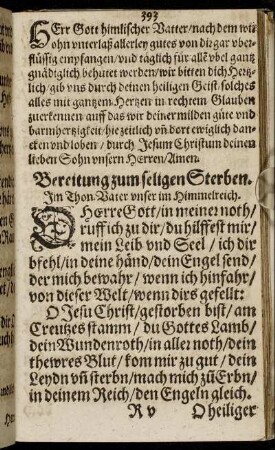 393
HErr Gott himlischer Vatter/nach dem wir
ohn vnterlaß allerley gutes von dir gar vber-
flüssig empfangen/vnd täglich für allē vbel gantz
gnädiglich behütet werden/wir bitten dich Hertz-
lich/gib vns durch deinen heiligen Geist/solches
alles mit gantzem Hertzen in rechtem Glauben
zuerkennen auff das wir deiner milden güte vnd
barmhertzigkeit/hie zeitlich vñ dort ewiglich dan-
cken vnd loben/durch Jesum Christum deinen
lieben Sohn vnsern HErren/Amen.
Bereitung zum seligen Sterben.
Im Thon. Vater vnser im Himmelreich.
O HErre Gott/in meiner noth/
ruff ich zu dir/du hilffest mir/
mein Leib vnd Seel/ich dir
bfehl/in deine händ/dein Engel send/
der mich bewahr/wenn ich hinfahr/
von dieser Welt/wenn dirs gefellt:
O Jesu Christ/gestorben bist/am
Creutzes stamm/du Gottes Lamb/
dein Wundenroth/in aller noth/dein
thewres Blut/kom mir zu gut/dein
Leydn vñ sterbn/mach mich zů Erbn/
in deinem Reich/den Engeln gleich.
R v O heiliger